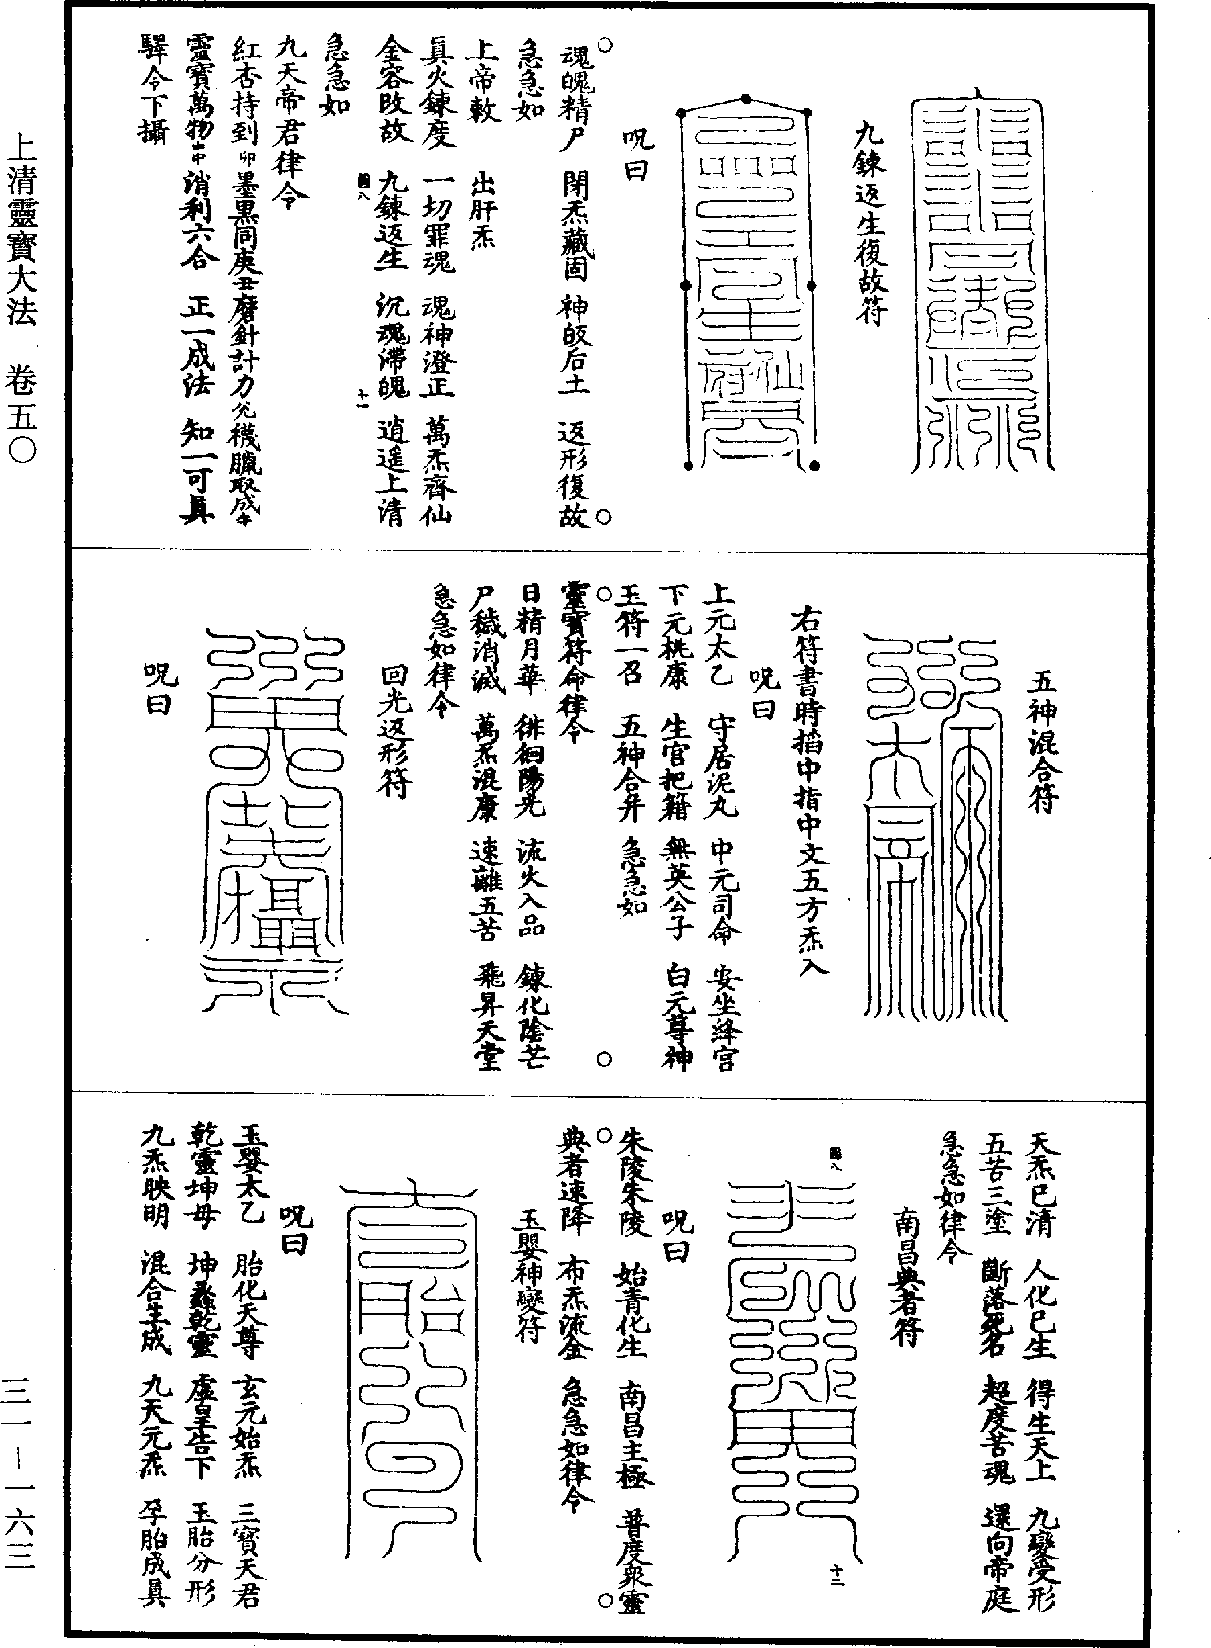 九鍊返生復故符
呪曰
魂魄精尸 閉炁藏固 神皎后土 返形復故
急急如
上帝敕 出肝炁
眞火鍊度 一切罪魂 魂神澄正 萬炁齊仙
金容敗故 九鍊返生 沉魂滯魄 逍遥上清
急急如
九天帝君律令
紅杏持到卯墨黑同庚丑磨針計力
靈寶萬物 消利六合 正一成法 知一可真
驛令下攝
五神混合符
右符書時搯中指中文五方炁入
呪曰
上元太乙 守居泥丸 中元司命 安坐絳宮
下元桃康 生官把籍 無英公子 白元尊神
玉符一召 五神合并 急急如
靈寶符命律令
日精月華 徘徊陽光 流火入品 鍊化陰芒
尸穢消滅 萬炁混康 速離五苦 飛昇天堂
急急如律令
回光返形符
呪曰
天炁已清 人化已生 得生天上 九變受形
五苦三塗 斷落死名 超度苦魂 還向帝庭
急急如律令
南昌典者符
十二
呪曰
朱陵朱陵 始青化生 南昌主極 普度衆靈
典者速降 布炁流金 急急如律令
玉嬰神變符
呪曰
玉嬰太乙 胎化天尊 玄元始炁 三寶天君
乾靈坤母 坤乾靈 虛皇告下 玉胎分形
九炁映明 混合生成 九天元炁 孕胎成眞
上清靈寶大法 卷五〇
三一－一六三